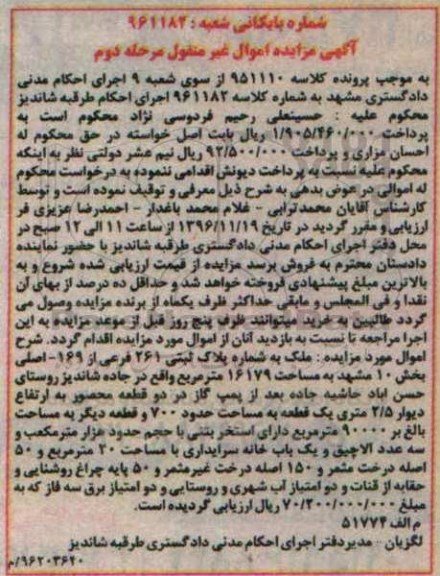 شماره بایگانی شعبه : ۹۶۱۱۸۲
آگهی مزایده اموال غیر منقول مرحله دوم
به موجب پرونده کلاسه ۹۵۱۱۱۰ از سوی شعبه ۹ اجرای احکام مدنی
دادگستری مشهد به شماره کلاسه ۹۶۱۱۸۲ اجرای احکام طرقبه شاندیز
محکوم علیه : حسینعلی رحیم فردوسی نژاد محکوم است به
پرداخت ۱/۹۰۵/۴۶۰/۰۰۰ ریال بابت اصل خواسته در حق محکوم له
احسان مزاری و پرداخت ۹۲/۵۰۰/۰۰۰ ریال نیم عشر دولتی نظر به اینکه
محکوم علیه نسبت به پرداخت دیونش اقدامی ننموده به درخواست محکوم
له اموالی در عوض بدهی به شرح ذیل معرفی و توقیف نموده است و توسط
کارشناس آقایان محمدترابی - غلام محمد باغدار - احمدرضا عزیزی فر
ارزیابی و مقرر گردید در تاریخ ۱۳۹۶/۱۱/۱۹ از ساعت ۱۱ الی ۱۲ صبح در
محل دفتر اجرای احکام مدنی دادگستری طرقبه شاندیز با حضور نماینده
دادستان محترم به فروش برسد مزایده از قیمت ارزیابی شده شروع و به
بالاترین مبلغ پیشنهادی فروخته خواهد شد و حداقل ده درصد از بهای آن
نقدا و فی المجلس و مابقی حداکثر ظرف یکماه از برنده مزایده وصول می
گردد طالبین به خرید میتوانند ظرف پنج روز قبل از موعد مزایده به این
اجرا مراجعه تا نسبت به بازدید آنان از اموال مورد مزایده اقدام گردد. شرح
اموال مورد مزایده : ملک به شماره پلاک ثبتی ۲۶۱ فرعی از ۱۶۹- اصلی
بخش ۱۰ مشهد به مساحت ۱۶۱۷۹ مترمربع واقع در جاده شاندیز روستای
حسن اباد حاشیه جاده بعد از پمپ گاز در دو قطعه محصور به ارتفاع
دیوار ۲/۵ متری یک قطعه به مساحت حدود ۷۰۰ و قطعه دیگر به مساحت
بالغ بر ۹۰۰۰۰ مترمربع دارای استخر بتنی با حجم حدود هزار مترمکعب و
سه عدد آلاچیق و یک باب خانه سرایداری با مساحت ۲۰ مترمربع و ۵۰
اصله درخت مثمر و ۱۵۰ اصله درخت غیرمثمر و ۵۰ پایه چراغ روشنایی و
حقابه از قنات و دو امتیاز آب شهری و روستایی و دو امتیاز برق سه فاز که به
مبلغ ۷۰/۲۰۰/۰۰۰/۰۰۰ ریال ارزیابی گردیده است.
م الف ۵۱۷۷۴
لگزیان - مدیر دفتر اجرای احکام مدنی دادگستری طرقبه شاندیز
۹۶۲۰۳۶۴۰/م